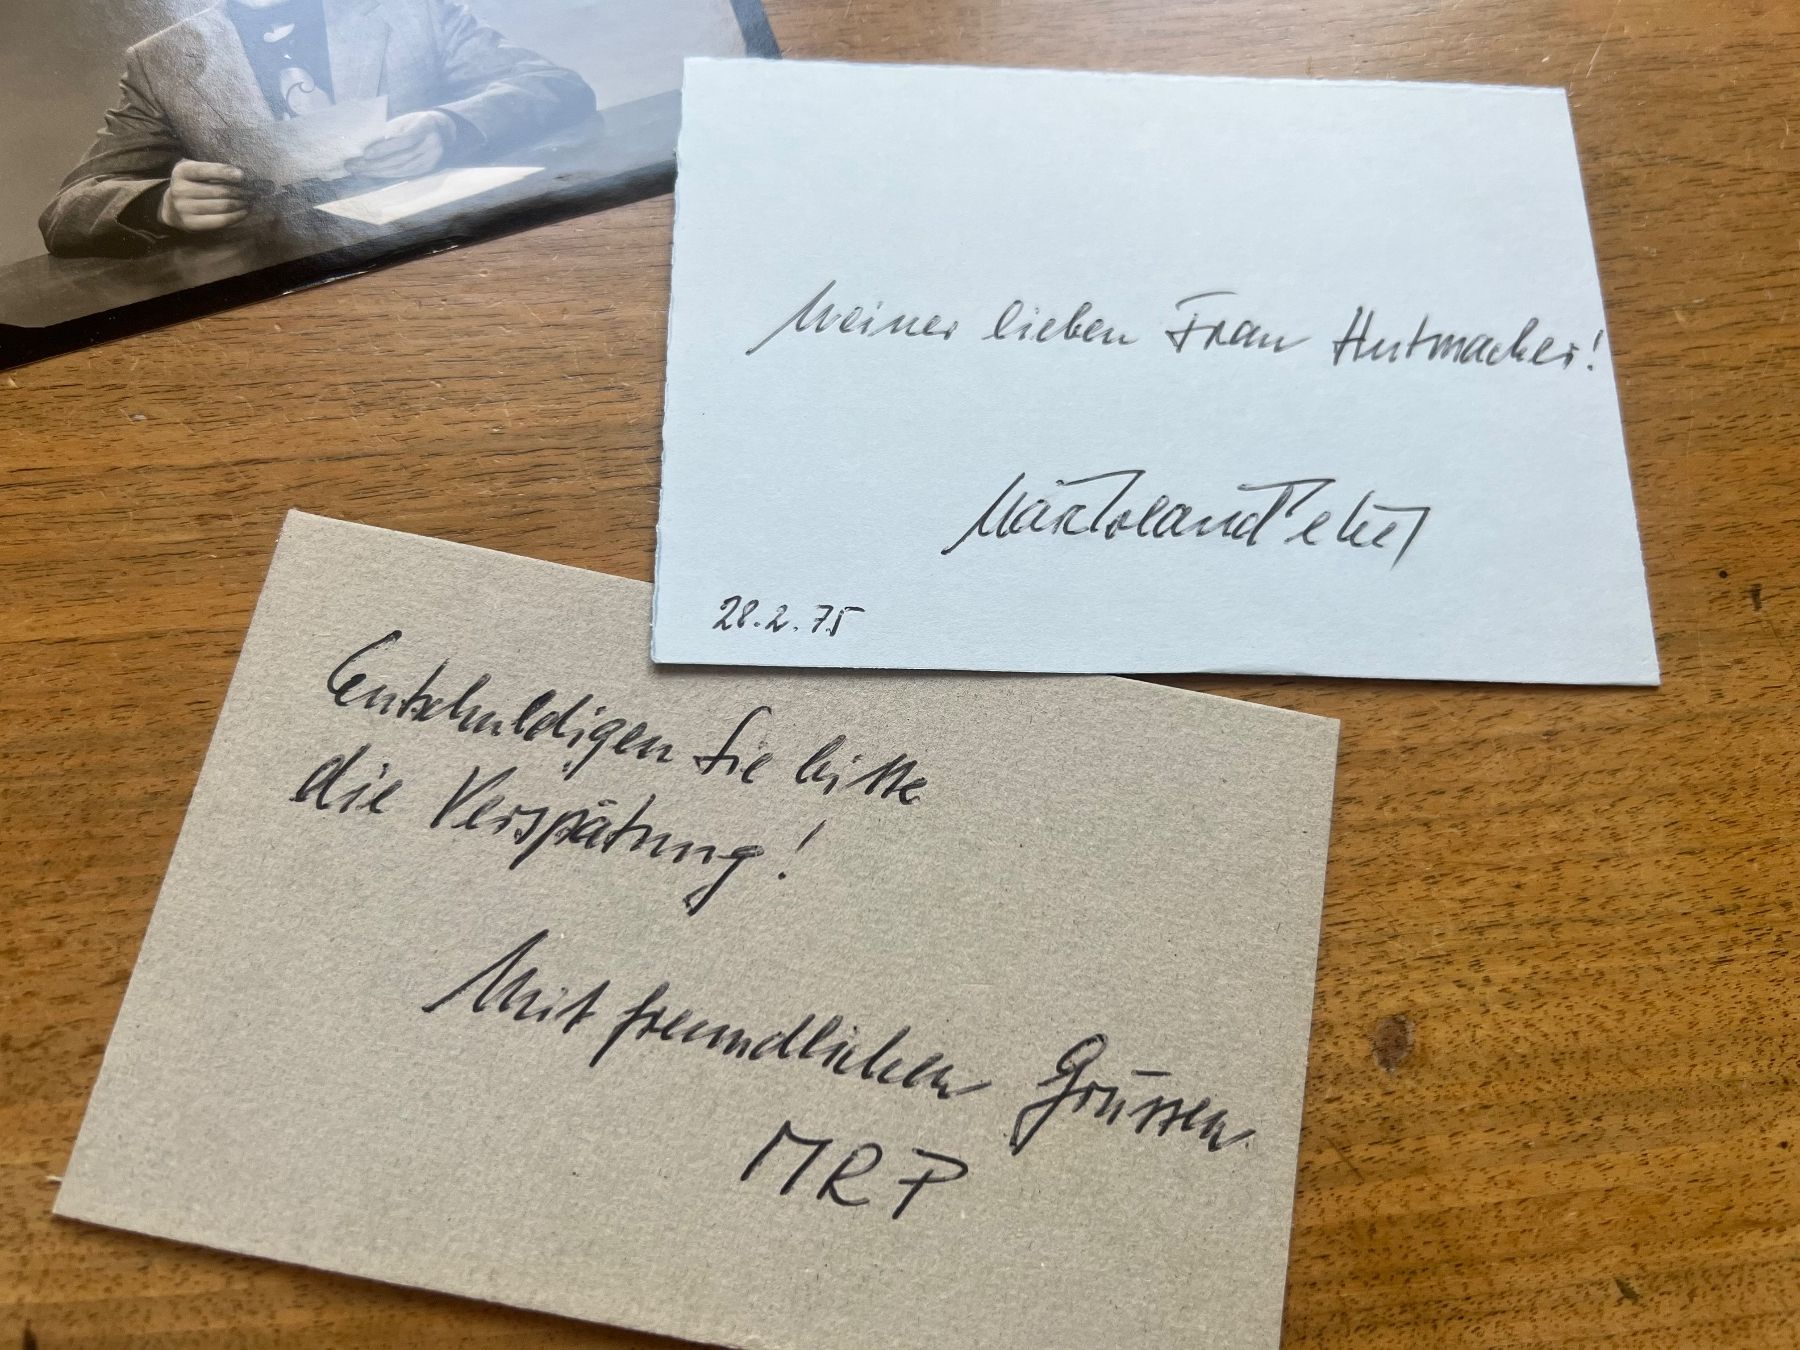 Meiner lieben Frau Hutmacher!
28.2.75
Entschuldigen Sie bitte
die Verspätung!
Mit freundlichen Grüssen
MRP